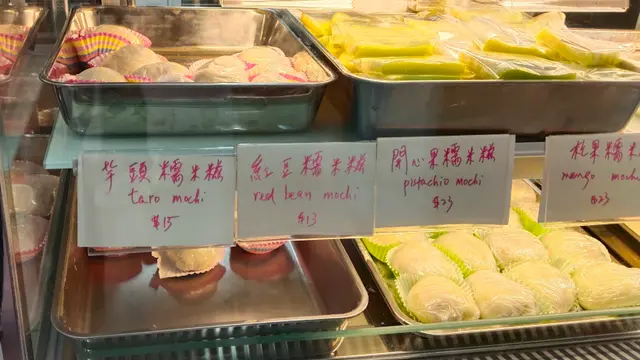 芋頭糯米糍
taro mochi
$15
紅豆糯米糍
red bean mochi
$13
開心果糯米糍
pistachio mochi
$23
杧果糯米糍
mango mochi
$23